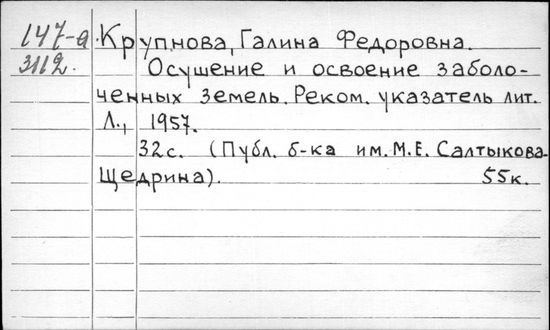 147-а Крупнова, Галина Федоровна.
3112.
Осушение и освоение заболо-
ченных земель. Реком. указатель лит.
Л., 1957.
32с. (Публ. б-ка им. М.Е. Салтыкова-
Щедрина). 55к.